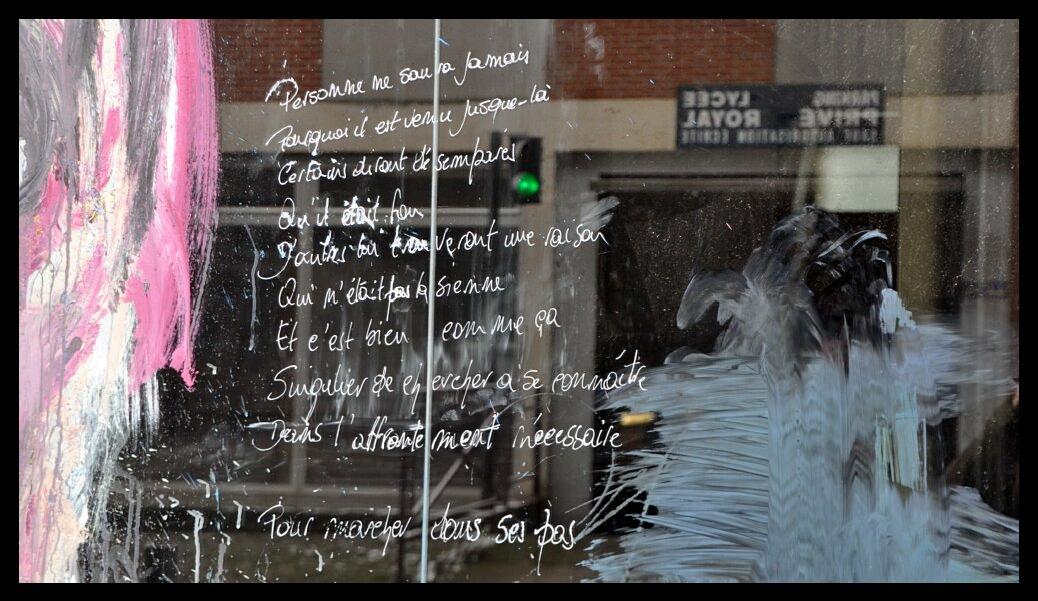 Personne ne saura jamais
Pourquoi il est venu jusque-là
Certains diront désemparés
Qu'il était fou
D'autres lui trouveront une raison
Qui n'était pas la sienne
Et c'est bien comme ça
Singulier de chercher à se connaître
Dans l'affrontement nécessaire
Pour marcher dans ses pas
PARKING LYCEE
PRIVE ROYAL